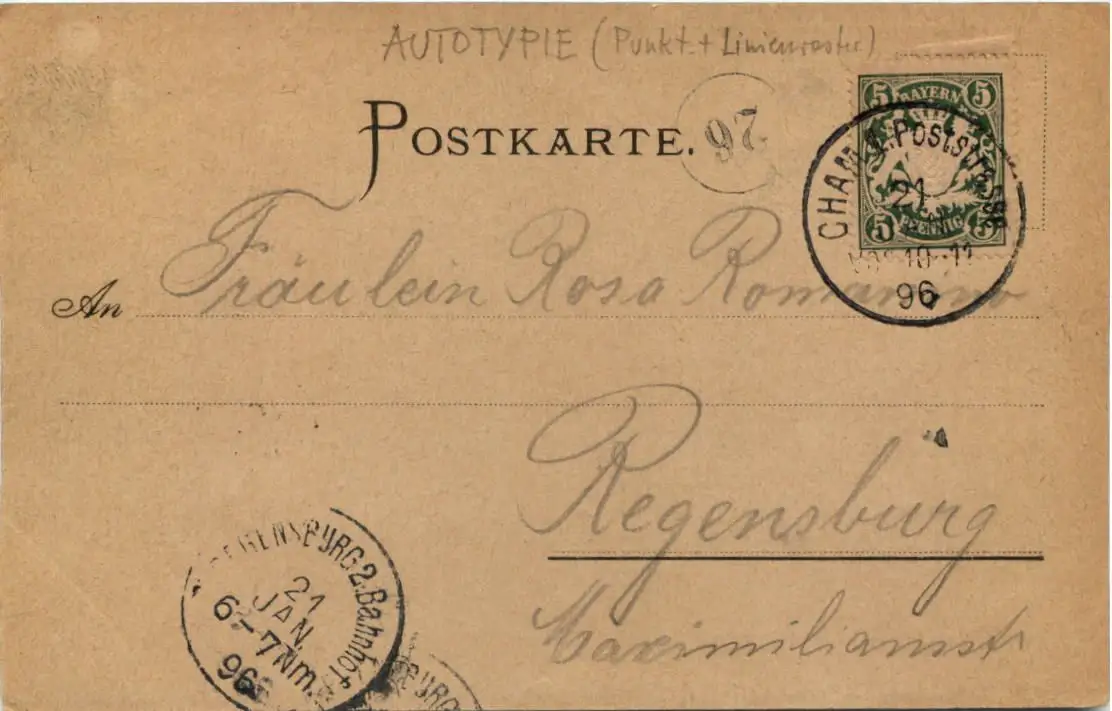 AUTOTYPIE (Punkt.+ Linienraster)
POSTKARTE.
97
5 BAYERN 5
5 PFENNIG 5
CHAM 2. Poststrasse
21
10-11
96
An Fräulein Rosa Romanino
Regensburg
Maximilianstr
REGENSBURG 2. Bahnhof.
21
JAN
6-7 Nm.
96
BURG